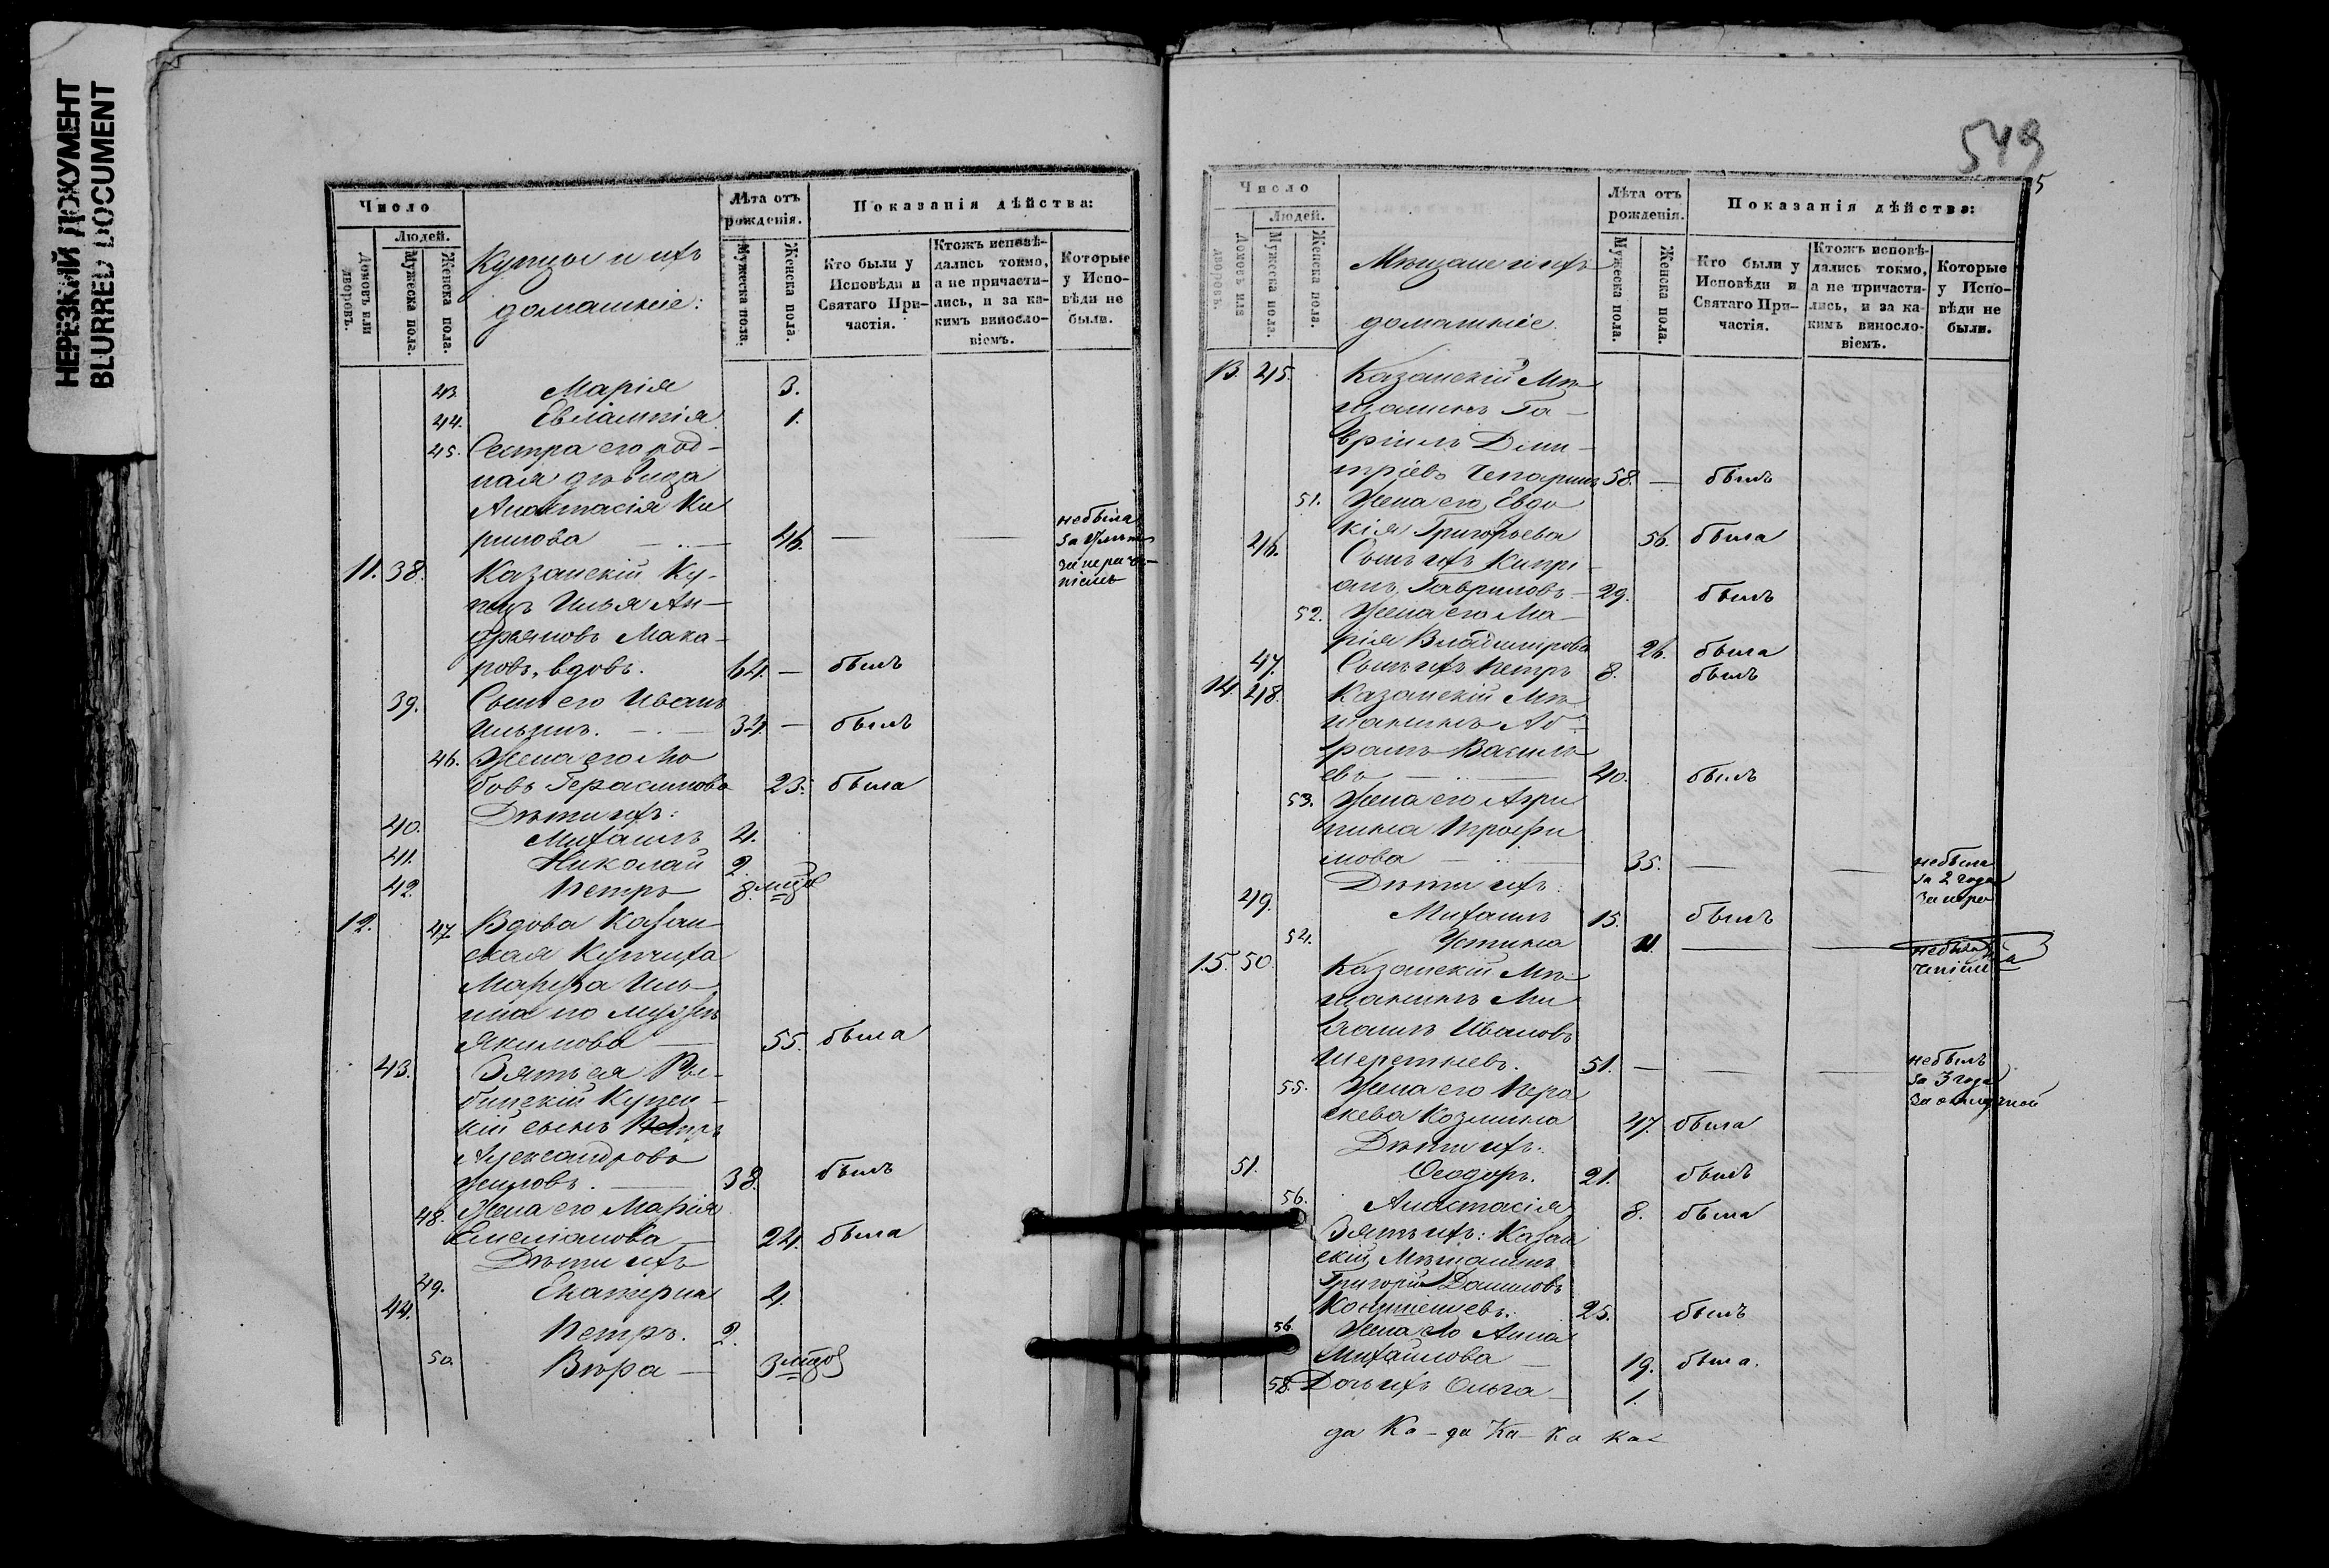 НЕРЕЗКИЙ ДОКУМЕНТ
BLURRED DOCUMENT
Число
Людей.
Домовъ или дворовъ.
Мужеска пола.
Женска пола.
Купцы и ихъ
домашніе:
Лѣта отъ рожденія.
Мужеска пола.
Женска пола.
Показанія дѣйства:
Кто были у Исповѣди и Святаго Причастія.
Ктожъ исповѣдались токмо, а не причастились, и за какимъ винословіемъ.
Которые у Исповѣди не были.
43. Марія 3.
44. Евлампія 1.
45. Сестра его род-
ная дѣвица
Анастасія Ки
рилова 46. — — не была
за
за нераче-
ніемъ
11. 38. Казанскій Ку-
пецъ Илья Ан-
дреяновъ Мака-
ровъ, вдовъ. 64. — былъ
39. Сынъ его Иванъ
Ильинъ. 34. — былъ
46. Жена его Лю
бовь Герасимова 23. была
Дѣти ихъ:
40. Михаилъ 4.
41. Николай 2.
42. Петръ 8. мцов
12. 47. Вдова Казан-
ская Купчиха
Марѳа Иль-
ина по мужѣ
Якимова 55. была
43. Зять ея Ры-
бинскій Купеч-
кій сынъ Петръ
Александровъ
38. былъ
48. Жена его Марія
Емеліанова 24. была
Дѣти ихъ
49. Екатерина 4.
44. Петръ. 2.
50. Вѣра — 3 мцов
549
5
Число
Людей.
Домовъ или дворовъ.
Мужеска пола.
Женска пола.
Мѣщане и ихъ
домашніе.
Лѣта отъ рожденія.
Мужеска пола.
Женска пола.
Показанія дѣйства:
Кто были у Исповѣди и Святаго Причастія.
Ктожъ исповѣдались токмо, а не причастились, и за какимъ винословіемъ.
Которые у Исповѣди не были.
13. 45. Казанскій Мѣ-
щанинъ Га-
вріилъ Дми-
тріевъ Чепаринъ 58. — былъ
51. Жена его Евдо
кія Григорьева 56. была
46. Сынъ ихъ Кипрі-
анъ Гавриловъ 29. былъ
52. Жена его Ма-
рія Владимірова 26. была
47. Сынъ ихъ Петръ 8. былъ
14 48. Казанскій Мѣ-
щанинъ Аб-
рамъ Василь
евъ 40. былъ
53. Жена его Агри
пина Трофи
мова 35. — — не была
за 2 года
за нера
Дѣти ихъ:
49. Михаилъ 15. былъ
54. Устинья 11. — — не была
чтіемъ
15. 50. Казанскій Мѣ-
щанинъ Ми
хаилъ Ивановъ
Шереметьевъ. 51. — — — не былъ
за 3 года
за отлучкой
55. Жена его Пара
скева Козмина 47. была
Дѣти ихъ:
51. Ѳеодоръ. 21. былъ
56. Анастасія 8. была
Зять ихъ: Казан
скій Мѣщанинъ
Григорій Даниловъ
25. былъ
56. Жена его Анна
Михайлова 19. была.
58. Дочь ихъ Ольга 1.
да Ка- да Ка- Ка Ка-